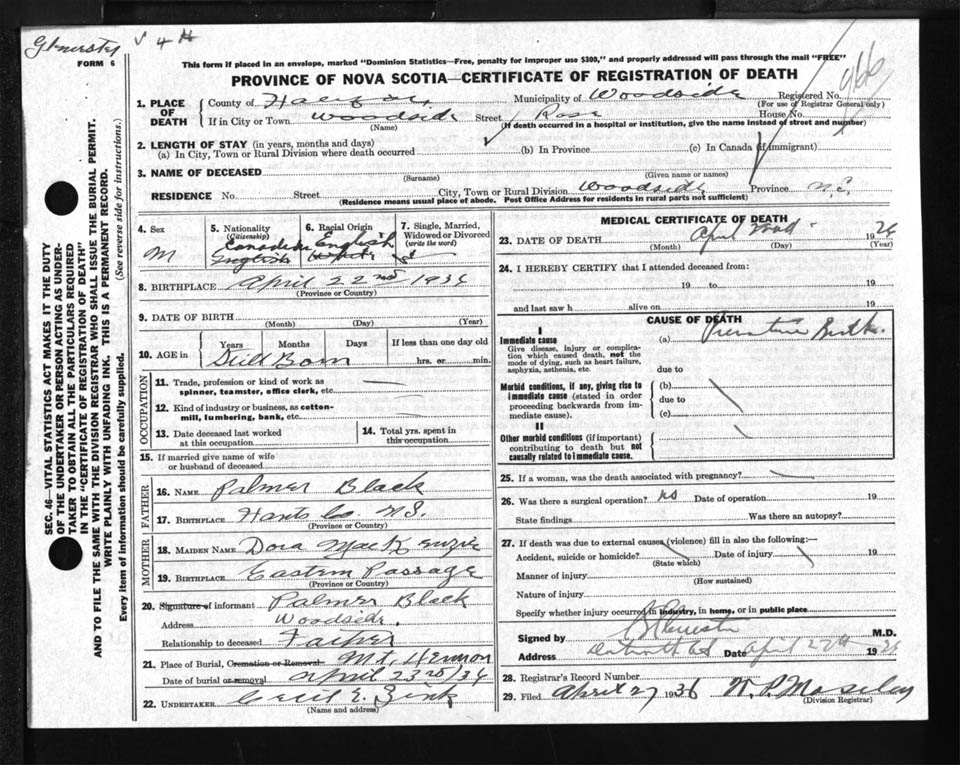 V 4 H
FORM 6
This form if placed in an envelope, marked "Dominion Statistics—Free, penalty for improper use $300," and properly addressed will pass through the mail "FREE"
PROVINCE OF NOVA SCOTIA—CERTIFICATE OF REGISTRATION OF DEATH
966
SEC. 46—VITAL STATISTICS ACT MAKES IT THE DUTY
OF THE UNDERTAKER OR PERSON ACTING AS UNDER-
TAKER TO OBTAIN ALL THE PARTICULARS REQUIRED
IN THE "CERTIFICATE OF REGISTRATION OF DEATH"
AND TO FILE THE SAME WITH THE DIVISION REGISTRAR WHO SHALL ISSUE THE BURIAL PERMIT.
WRITE PLAINLY WITH UNFADING INK. THIS IS A PERMANENT RECORD.
Every item of information should be carefully supplied. (See reverse side for instructions.)
1. PLACE OF DEATH
County of Halifax Municipality of Woodside Registered No.
(For use of Registrar General only)
If in City or Town Woodside Street Rose House No.
(Name) (If death occurred in a hospital or institution, give the name instead of street and number)
2. LENGTH OF STAY (in years, months and days)
(a) In City, Town or Rural Division where death occurred (b) In Province (c) In Canada (if immigrant)
3. NAME OF DECEASED
(Surname) (Given name or names)
RESIDENCE No. Street City, Town or Rural Division Woodside Province N.S.
(Residence means usual place of abode. Post Office Address for residents in rural parts not sufficient)
4. Sex
M
5. Nationality
(Citizenship)
Canadian
English
6. Racial Origin
English
White
7. Single, Married,
Widowed or Divorced
(write the word)
S
8. BIRTHPLACE April 22nd 1936
(Province or Country)
9. DATE OF BIRTH
(Month) (Day) (Year)
10. AGE in Years Months Days If less than one day old
Still Born hrs. or min.
OCCUPATION
11. Trade, profession or kind of work as
spinner, teamster, office clerk, etc.
12. Kind of industry or business, as cotton-
mill, lumbering, bank, etc.
13. Date deceased last worked
at this occupation
14. Total yrs. spent in
this occupation
15. If married give name of wife
or husband of deceased
FATHER
16. NAME Palmer Black
17. BIRTHPLACE Hants Co N.S.
(Province or Country)
MOTHER
18. MAIDEN NAME Dora MacKenzie
19. BIRTHPLACE Eastern Passage
(Province or Country)
20. Signature of informant Palmer Black
Address Woodside.
Relationship to deceased Father
21. Place of Burial, Cremation or Removal Mt. Hermon
Date of burial or removal April 23rd/36
22. UNDERTAKER Cecil E. Zink
(Name and address)
MEDICAL CERTIFICATE OF DEATH
23. DATE OF DEATH April 22nd 1936
(Month) (Day) (Year)
24. I HEREBY CERTIFY that I attended deceased from:
19 to 19
and last saw h alive on 19
CAUSE OF DEATH
I
Immediate cause
Give disease, injury or complica-
tion which caused death, not the
mode of dying, such as heart failure,
asphyxia, asthenia, etc.
(a) Premature Birth.
due to
Morbid conditions, if any, giving rise to
immediate cause (stated in order
proceeding backwards from im-
mediate cause).
(b)
due to
(c)
II
Other morbid conditions (if important)
contributing to death but not
causally related to immediate cause.
25. If a woman, was the death associated with pregnancy?
26. Was there a surgical operation? no Date of operation 19
State findings Was there an autopsy?
27. If death was due to external causes (violence) fill in also the following:—
Accident, suicide or homicide? Date of injury 19
(State which)
Manner of injury
(How sustained)
Nature of injury
Specify whether injury occurred in industry, in home, or in public place
Signed by M.D.
Address Date April 27th 1936
28. Registrar's Record Number
29. Filed April 27 1936
(Division Registrar)